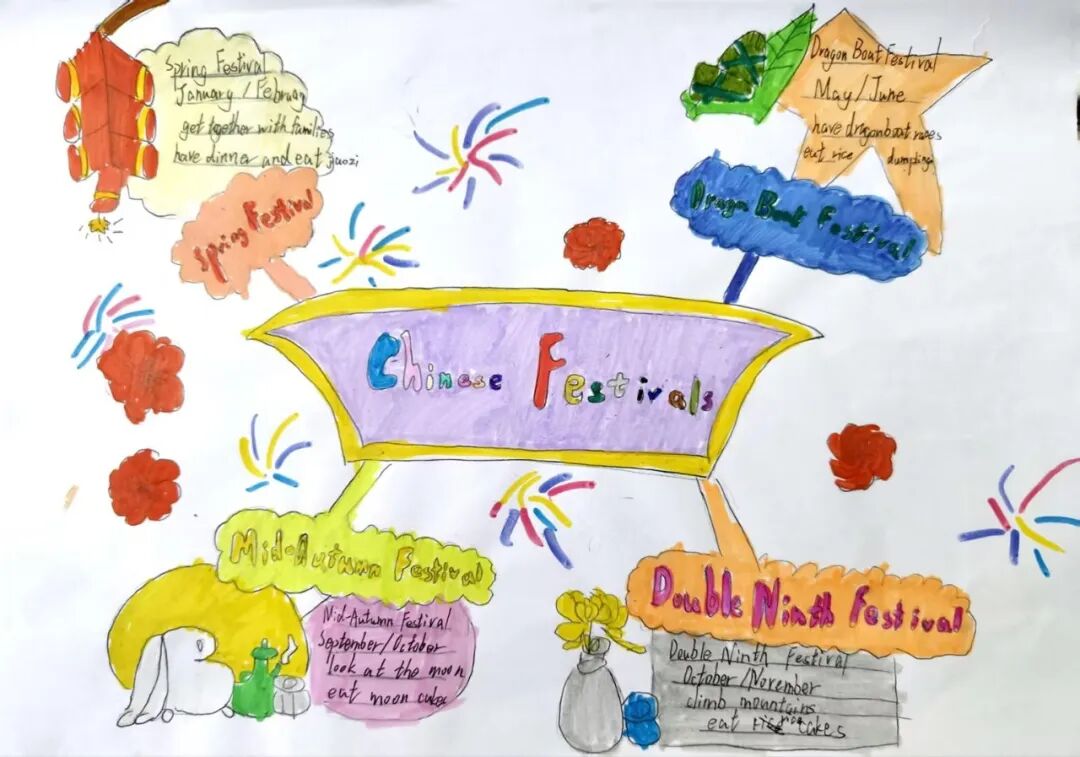 Spring Festival
January / February
get together with families
have dinner and eat jiaozi
Spring Festival
Dragon Boat Festival
May / June
have dragon boat races
eat rice dumpling
Dragon Boat Festival
Chinese Festivals
Mid-Autumn Festival
Mid-Autumn Festival
September/October
look at the moon
eat moon cakes
Double Ninth Festival
Double Ninth Festival
October /November
climb mountains
eat rice cakes